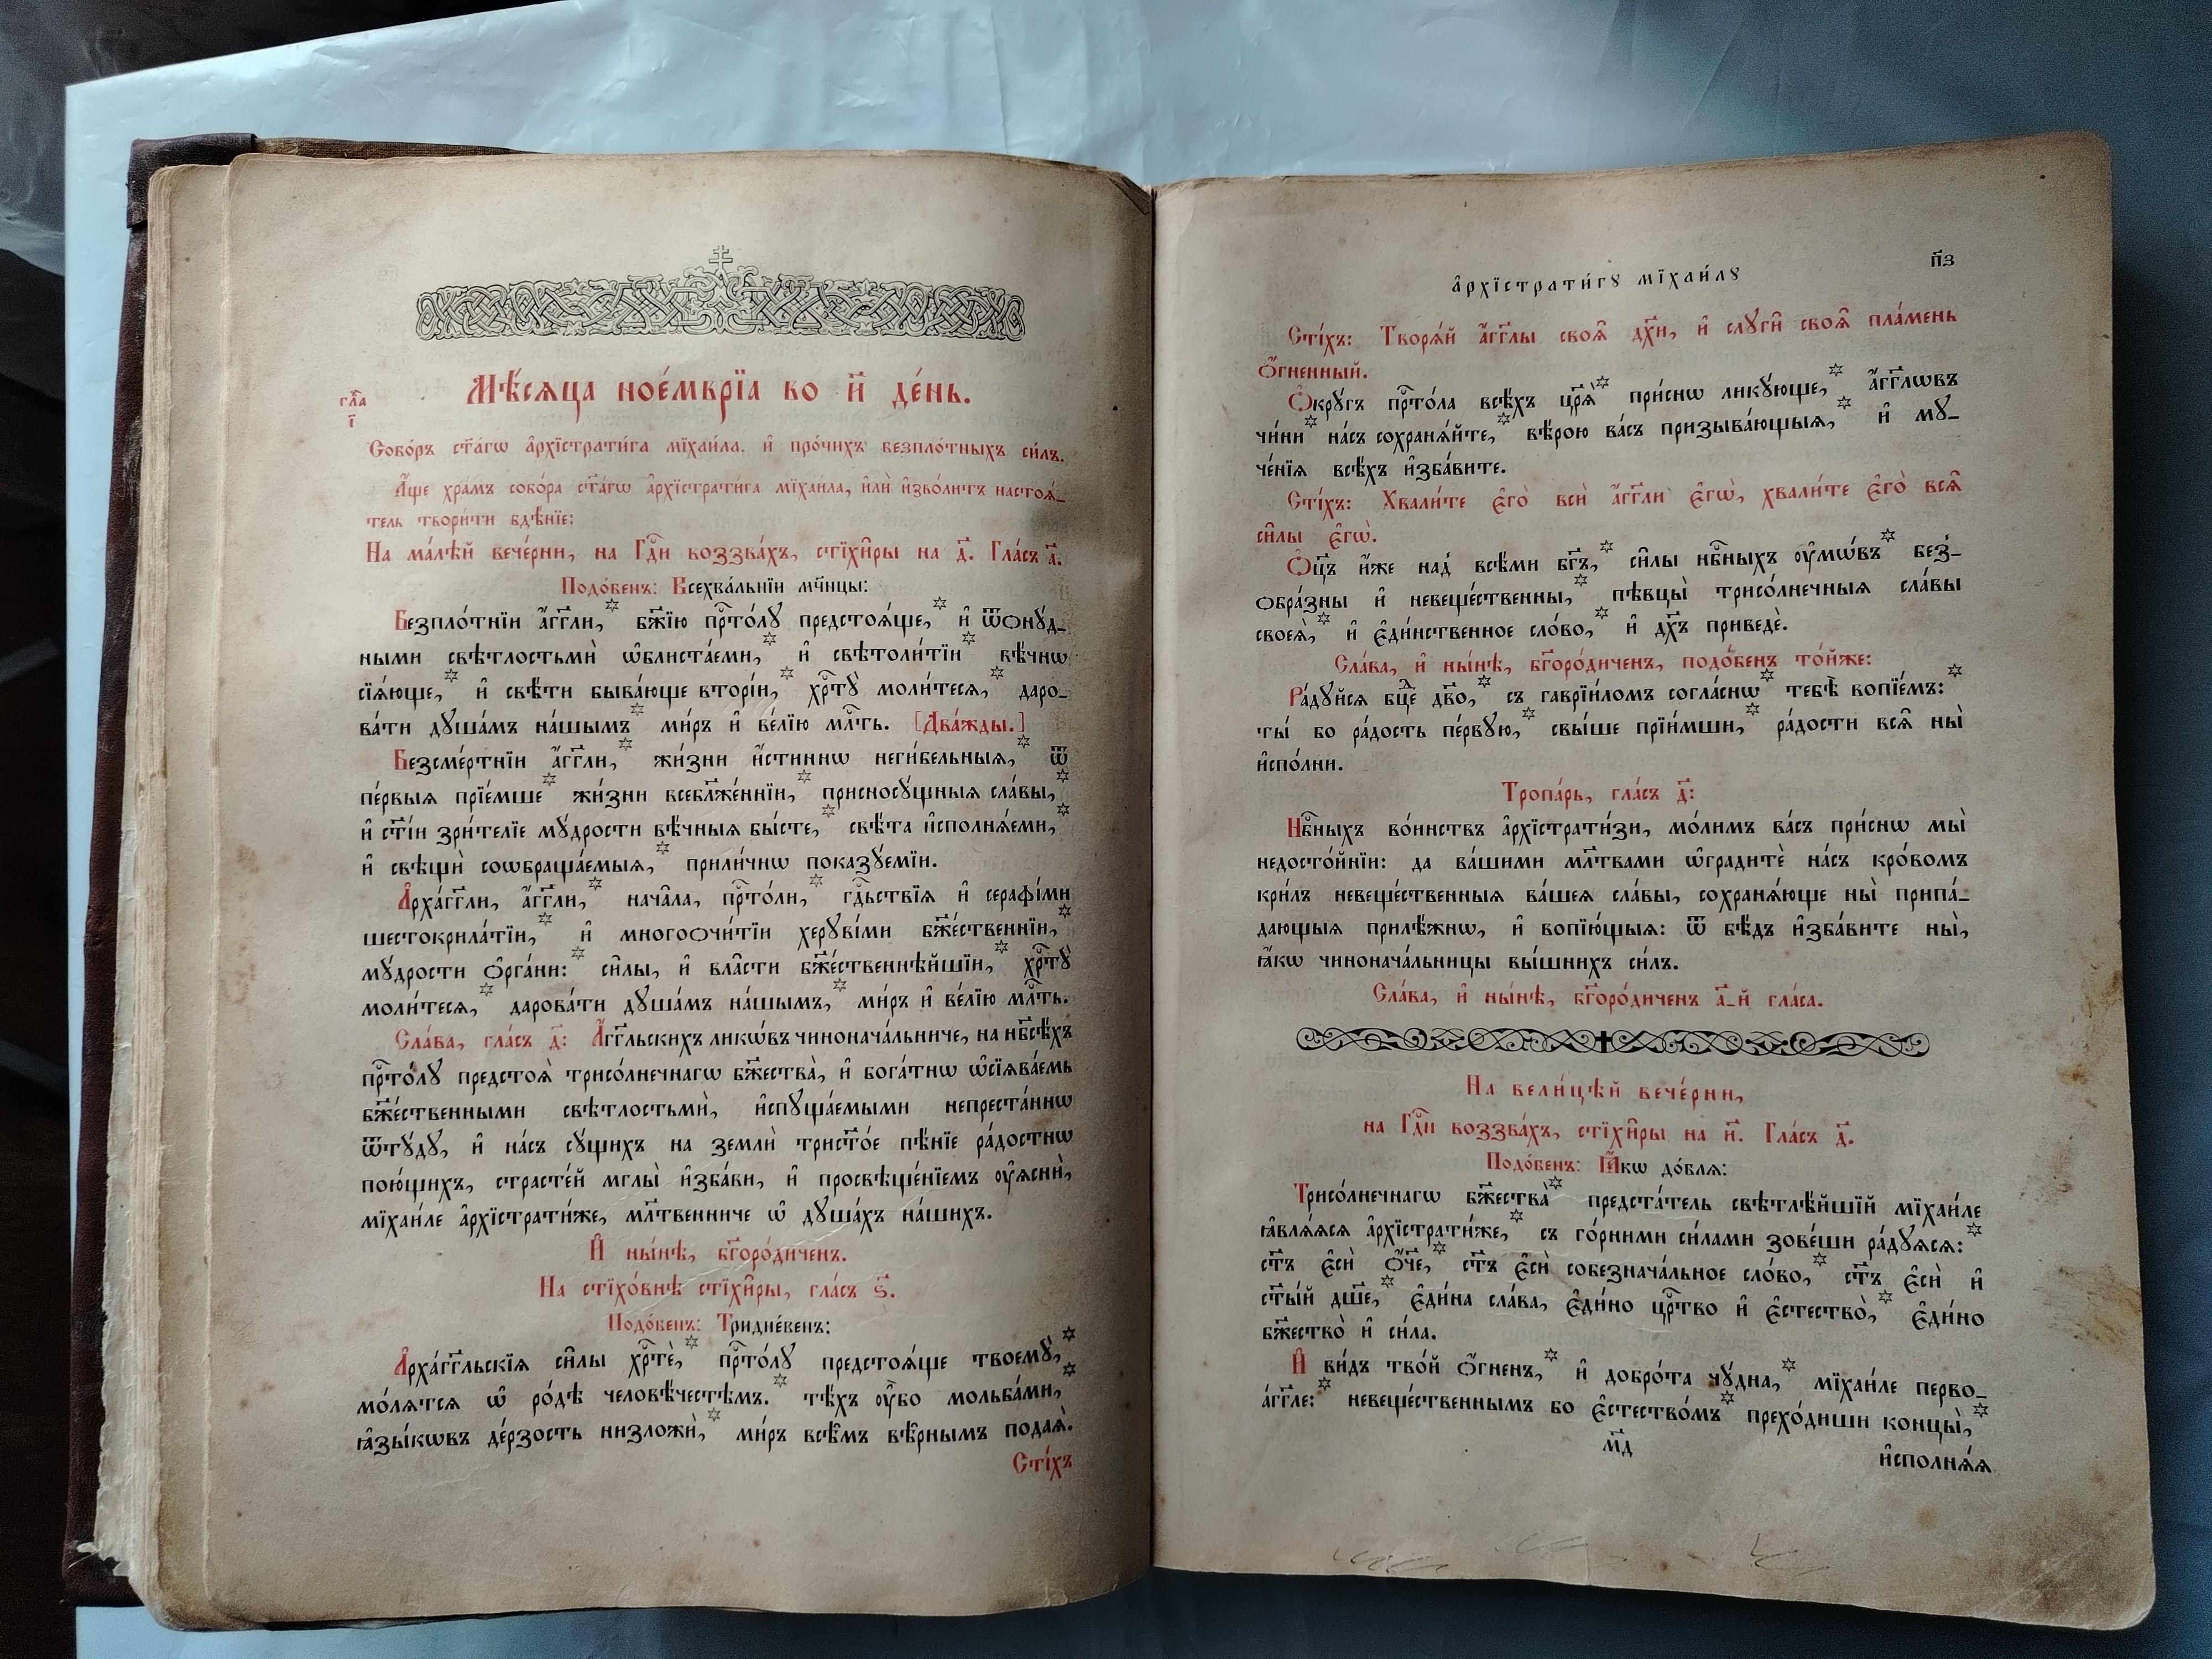 гл҃а
і҃
Мѣ́сѧца ное́мврїа во и҃ де́нь.
Собо́ръ ст҃а́гѡ а҆рхїстрати́га мїхаи́ла. и҆ про́чихъ безпло́тныхъ си́лъ.
А҆́ще хра́мъ собо́ра ст҃а́гѡ а҆рхїстрати́га мїхаи́ла, и҆лѝ и҆зво́литъ настоѧ́-
тель твори́ти бдѣ́нїе:
На ма́лѣй вече́рни, на Гдⷭ҇и воззва́хъ, стїхи̑ры на д҃. Гла́съ а҃.
Подо́бенъ: Всехва́льнїи мч҃нцы:
Безпло́тнїи а҆́гг҃ли,* бж҃їю прⷭ҇то́лу предстоѧ́ще,* и҆ ѿѻнꙋ́д-
ными свѣтлостьмѝ ѡ҆блиста́еми,* и҆ свѣтоли́тїи* вѣ́чнѡ
сїѧ́юще,* и҆ свѣ́ти быва́юще вторі́и,* хрⷭ҇тꙋ̀ моли́тесѧ,* даро-
ва́ти дꙋша́мъ на́шымъ* ми́ръ и҆ ве́лїю млⷭ҇ть. [Два́жды.]
Безсме́ртнїи а҆́гг҃ли,* жи́зни и҆́стиннѡ неги́бельныѧ,* ѿ
пе́рвыѧ прїе́мше* жи́зни всебл҃же́ннїи,* присносꙋ́щныѧ сла́вы,*
и҆ ст҃і́и зри́телїе мꙋ́дрости вѣ́чныѧ бы́сте,* свѣ́та и҆сполнѧ́еми,*
и҆ свѣщѝ соѡбраща́емыѧ,* прили́чнѡ показꙋ́емїи.
А҆рха́гг҃ли, а҆́гг҃ли,* нача̑ла, прⷭ҇то́ли,* гдⷭ҇ьствїѧ и҆ серафі́ми
шестокрила́тїи,* и҆ многоѻчи́тїи херꙋві́ми бж҃е́ственнїи,*
мꙋ́дрости ѻ҆рга́ни:* си̑лы, и҆ вла̑сти бж҃е́ственнѣйшїи,* хрⷭ҇тꙋ̀
моли́тесѧ,* дарова́ти дꙋша́мъ на́шымъ,* ми́ръ и҆ ве́лїю млⷭ҇ть.
Сла́ва, гла́съ д҃: А҆́гг҃льскихъ ликѡ́въ чинонача́льниче, на нб҃сѣ́хъ
прⷭ҇то́лꙋ предстоѧ̀ трисо́лнечнагѡ бж҃ества̀, и҆ бога́тнѡ ѡ҆сїѧва́емь
бж҃е́ственными свѣтлостьмѝ, и҆спꙋща́емыми непреста́ннѡ
ѿтꙋ́дꙋ, и҆ на́съ сꙋ́щихъ на землѝ трист҃о́е пѣ́нїе ра́достнѡ
пою́щихъ, страсте́й мглы̀ и҆зба́ви, и҆ просвѣще́нїемъ ᲂу҆ѧснѝ,
мїхаи́ле а҆рхїстрати́же, мл҃твенниче ѡ҆ дꙋша́хъ на́шихъ.
И҆ ны́нѣ, бг҃оро́диченъ.
На стїхо́внѣ стїхи̑ры, гла́съ ѕ҃.
Подо́бенъ: Тридне́венъ:
А҆рха́гг҃льскїѧ си̑лы хрⷭ҇тѐ,* прⷭ҇то́лꙋ предстоѧ́ще твоемꙋ̀,*
мо́лѧтсѧ ѡ҆ ро́дѣ человѣ́честѣмъ.* тѣ́хъ ᲂу҆̀бо мольба́ми,*
ꙗ҆зы́кѡвъ де́рзость низложѝ,* ми́ръ всѣ̑мъ вѣ̑рнымъ подаѧ̀.
Сті́хъ
а҆рхїстрати́гꙋ мїхаи́лꙋ
п҃з
Сті́хъ: Творѧ́й а҆́гг҃лы своѧ̑ дх҃и, и҆ слꙋги̑ своѧ̑ пла́мень
ѻ҆́гненный.
Ѻ҆́крꙋгъ прⷭ҇то́ла всѣ́хъ цр҃ѧ̀* при́снѡ ликꙋ́юще,* а҆́гг҃лѡвъ
чи́ни* на́съ сохранѧ́йте,* вѣ́рою ва́съ призыва́ющыѧ,* и҆ мꙋ-
че́нїѧ всѣ́хъ и҆зба́вите.
Сті́хъ: Хвали́те є҆го̀ всѝ а҆́гг҃ли є҆гѡ̀, хвали́те є҆го̀ всѧ̑
си̑лы є҆гѡ̀.
Ѻ҆ц҃ъ и҆́же над̾ всѣ́ми бг҃ъ,* си̑лы нб҃ныхъ ᲂу҆мѡ́въ* без̾-
ѻбра́зны и҆ невеще́ственны,* пѣвцы̀ трисо́лнечныѧ сла́вы
своеѧ̀,* и҆ є҆ди́нственное сло́во,* и҆ дх҃ъ приведѐ.
Сла́ва, и҆ ны́нѣ, бг҃оро́диченъ, подо́бенъ то́йже:
Ра́дꙋйсѧ бцⷣе дв҃о,* съ гаврїи́ломъ согла́снѡ* тебѣ̀ вопїе́мъ:*
ты́ бо ра́дость пе́рвꙋю,* свы́ше прїи́мши,* ра́дости всѧ̑ ны̀
и҆спо́лни.
Тропа́рь, гла́съ д҃:
Нбⷭ҇ныхъ во́инствъ а҆рхїстрати́зи, мо́лимъ ва́съ при́снѡ мы̀
недосто́йнїи: да ва́шими мл҃твами ѡ҆градитѐ на́съ кро́вомъ
кри́лъ невеще́ственныѧ ва́шеѧ сла́вы, сохранѧ́юще ны̀ припа́-
дающыѧ прилѣ́жнѡ, и҆ вопїю́щыѧ: ѿ бѣ́дъ и҆зба́вите ны̀,
ꙗ҆́кѡ чинонача́льницы вы́шнихъ си́лъ.
Сла́ва, и҆ ны́нѣ, бг҃оро́диченъ а҃-й гла́са.
На вели́цѣй вече́рни,
на Гдⷭ҇и воззва́хъ, стїхи̑ры на и҃. Гла́съ д҃.
Подо́бенъ: Ꙗ҆́кѡ до́блѧ:
Трисо́лнечнагѡ бж҃ества̀* предста́тель свѣтлѣ́йшїй мїхаи́ле
ꙗ҆влѧ́ѧсѧ а҆рхїстрати́же,* съ го́рними си́лами зове́ши ра́дꙋѧсѧ:*
ст҃ъ є҆сѝ ѻ҆́ч҃е,* ст҃ъ є҆сѝ собезнача́льное сло́во,* ст҃ъ є҆сѝ и҆
ст҃ы́й дш҃е,* є҆ди́на сла́ва, є҆ди́но црⷭ҇тво и҆ є҆стество̀,* є҆ди́но
бж҃ество̀ и҆ си́ла.
И҆ ви́дъ тво́й ѻ҆́гненъ,* и҆ добро́та чꙋ́дна,* мїхаи́ле перво-
а́гг҃ле:* невеще́ственнымъ бо є҆стество́мъ* прехо́диши концы̀,*
м҃д
и҆сполнѧ́ѧ